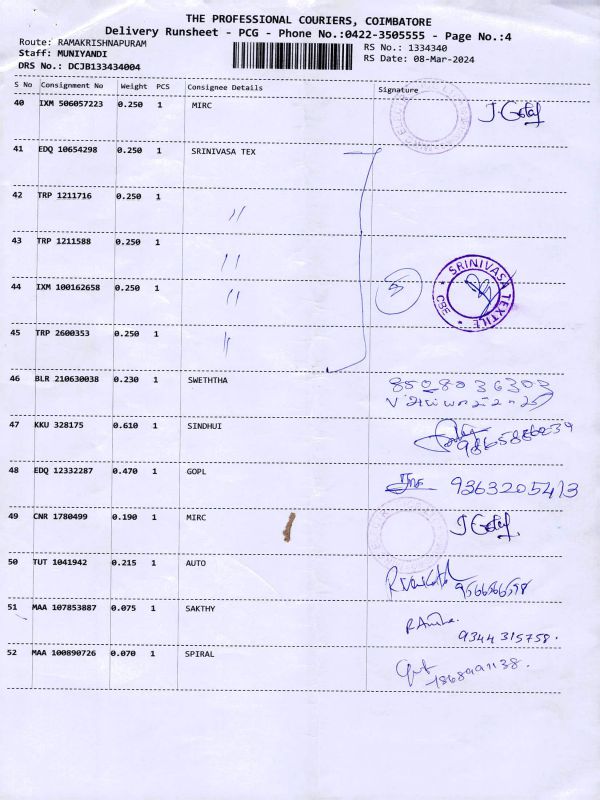 THE PROFESSIONAL COURIERS, COIMBATORE
Delivery Runsheet - PCG - Phone No.:0422-3505555 - Page No.:4
Route: RAMAKRISHNAPURAM
RS No.: 1334340
Staff: MUNIYANDI
RS Date: 08-Mar-2024
DRS No.: DCJB133434004
S No Consignment No Weight PCS Consignee Details Signature
40 IXM 506057223 0.250 1 MIRC
41 EDQ 10654298 0.250 1 SRINIVASA TEX
42 TRP 1211716 0.250 1 "
43 TRP 1211588 0.250 1 "
44 IXM 100162658 0.250 1 " 5 SRINIVASA TEXTILE CBE
45 TRP 2600353 0.250 1 "
46 BLR 210630038 0.230 1 SWEHTHA 8508036303
47 KKU 328175 0.610 1 SINDHUI
48 EDQ 12332287 0.470 1 GOPL 9363205413
49 CNR 1780499 0.190 1 MIRC
50 TUT 1041942 0.215 1 AUTO
51 MAA 107853887 0.075 1 SAKTHY 9344315758.
52 MAA 100890726 0.070 1 SPIRAL